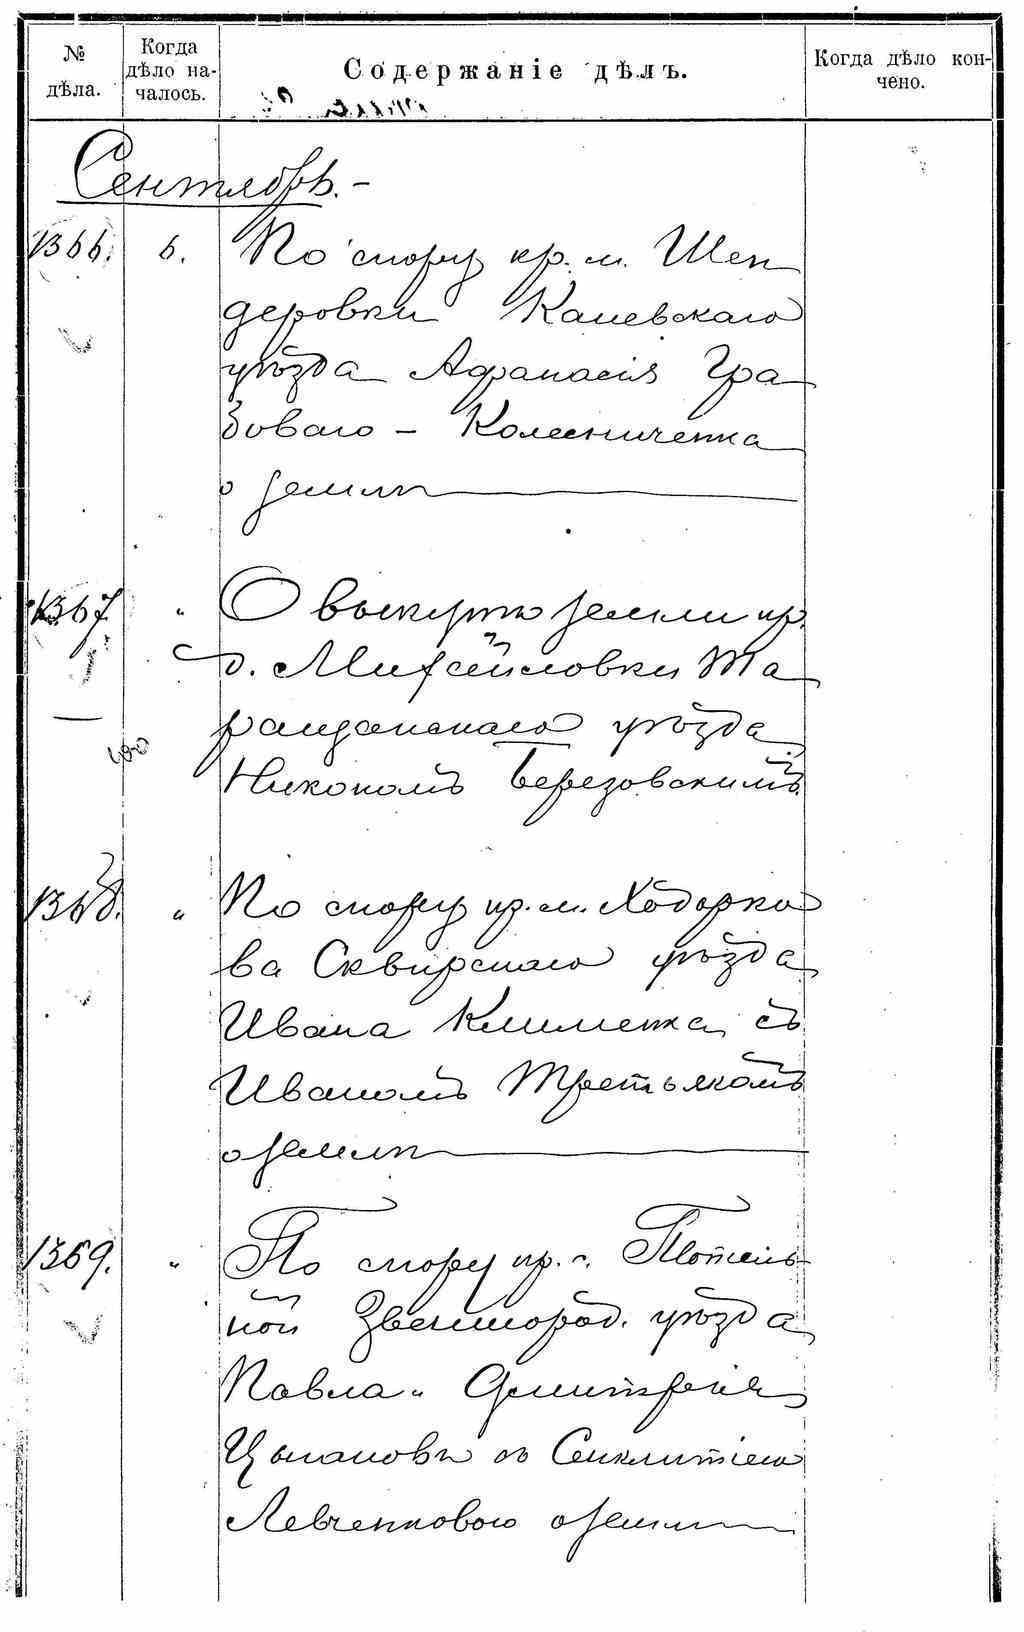 № дѣла.
Когда дѣло на-
чалось.
Содержаніе дѣлъ.
Когда дѣло кон-
чено.
Сентябрь.-
1366. 6. По спору кр. м. Шен
деровки Каневскаго
уѣзда Афанасія Гра
боваго - Колесниченка
о землѣ
1367 " О выкупѣ земли кр.
д. Михайловки Та
ращанскаго уѣзда
Никономъ Березовскимъ
1368. " По спору кр. м. Ходорко
ва Сквирскаго уѣзда
Ивана Клименка съ
Иваномъ Третьякомъ
о землѣ
1369. " По спору кр. с. Топиль
ной Звенигород. уѣзда
Павла и Дмитрія
Цыгановъ съ Синклитіею
Левченковою о землѣ